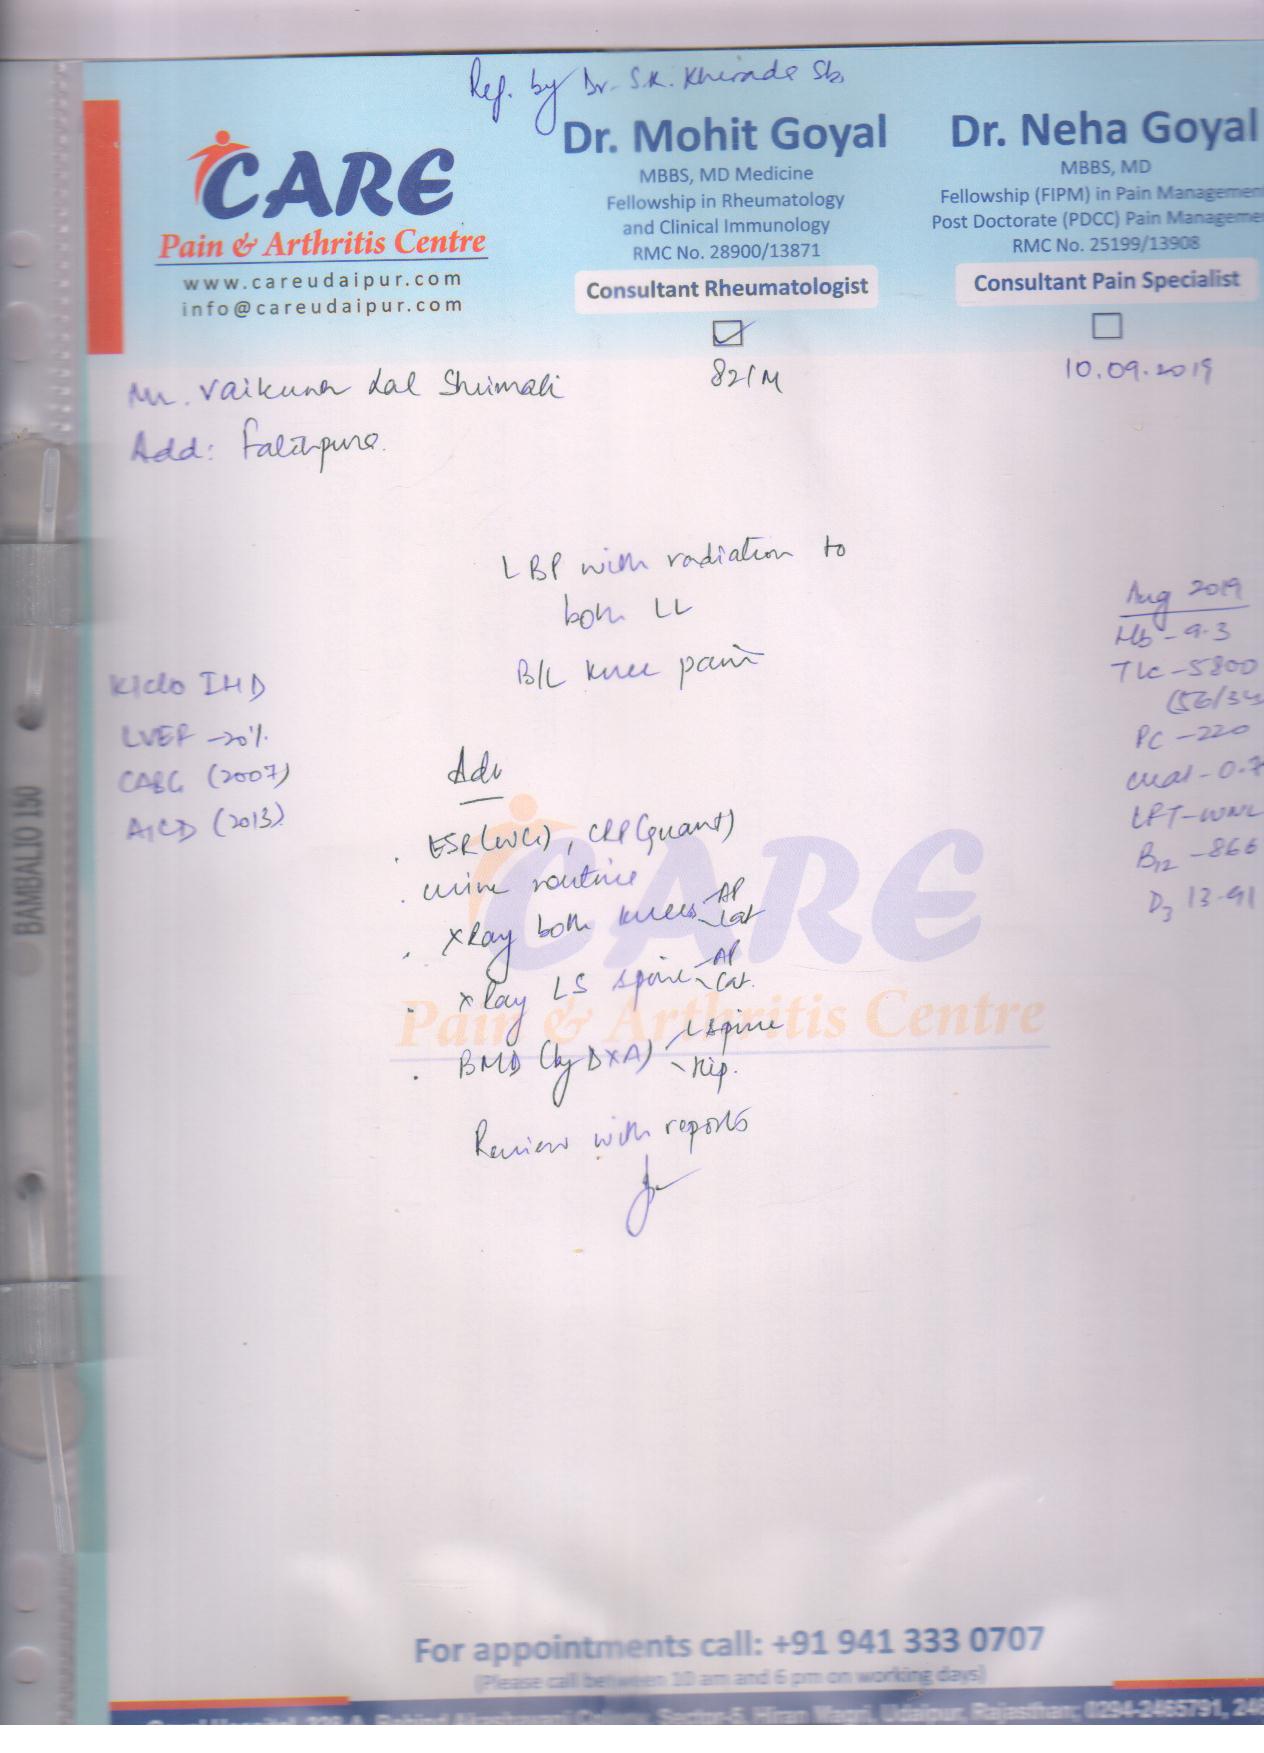 Ref. by Dr. S.K. Khirade Sb.
CARE
Pain & Arthritis Centre
www.careudaipur.com
info@careudaipur.com
Dr. Mohit Goyal
MBBS, MD Medicine
Fellowship in Rheumatology
and Clinical Immunology
RMC No. 28900/13871
Consultant Rheumatologist
Dr. Neha Goyal
MBBS, MD
Fellowship (FIPM) in Pain Managemen
Post Doctorate (PDCC) Pain Manageme
RMC No. 25199/13908
Consultant Pain Specialist
Mr. Vaikunth Lal Shrimali
82/M
10.09.2019
Add: Fatehpura.
LBP with radiation to
both LL
B/L knee pain
K/c/o IHD
LVEF -20%
CABG (2007)
AICD (2013)
Aug 2019
Hb - 9.3
TLC - 5800
(56/34
PC - 220
creat - 0.7
LFT - WNL
B12 - 866
D3 13.91
Adv
. ESR (WG), CRP (quant)
. urine routine
. X Ray both knees AP
Lat
. X Ray LS spine AP
Lat.
. BMD (by DXA) L spine
Hip.
Review with reports
CARE
Pain & Arthritis Centre
BAMBALIO 150
For appointments call: +91 941 333 0707
(Please call between 10 am and 6 pm on working days)
Sector-5, Hiran Magri, Udaipur, Rajasthan; 0294-2465791, 246